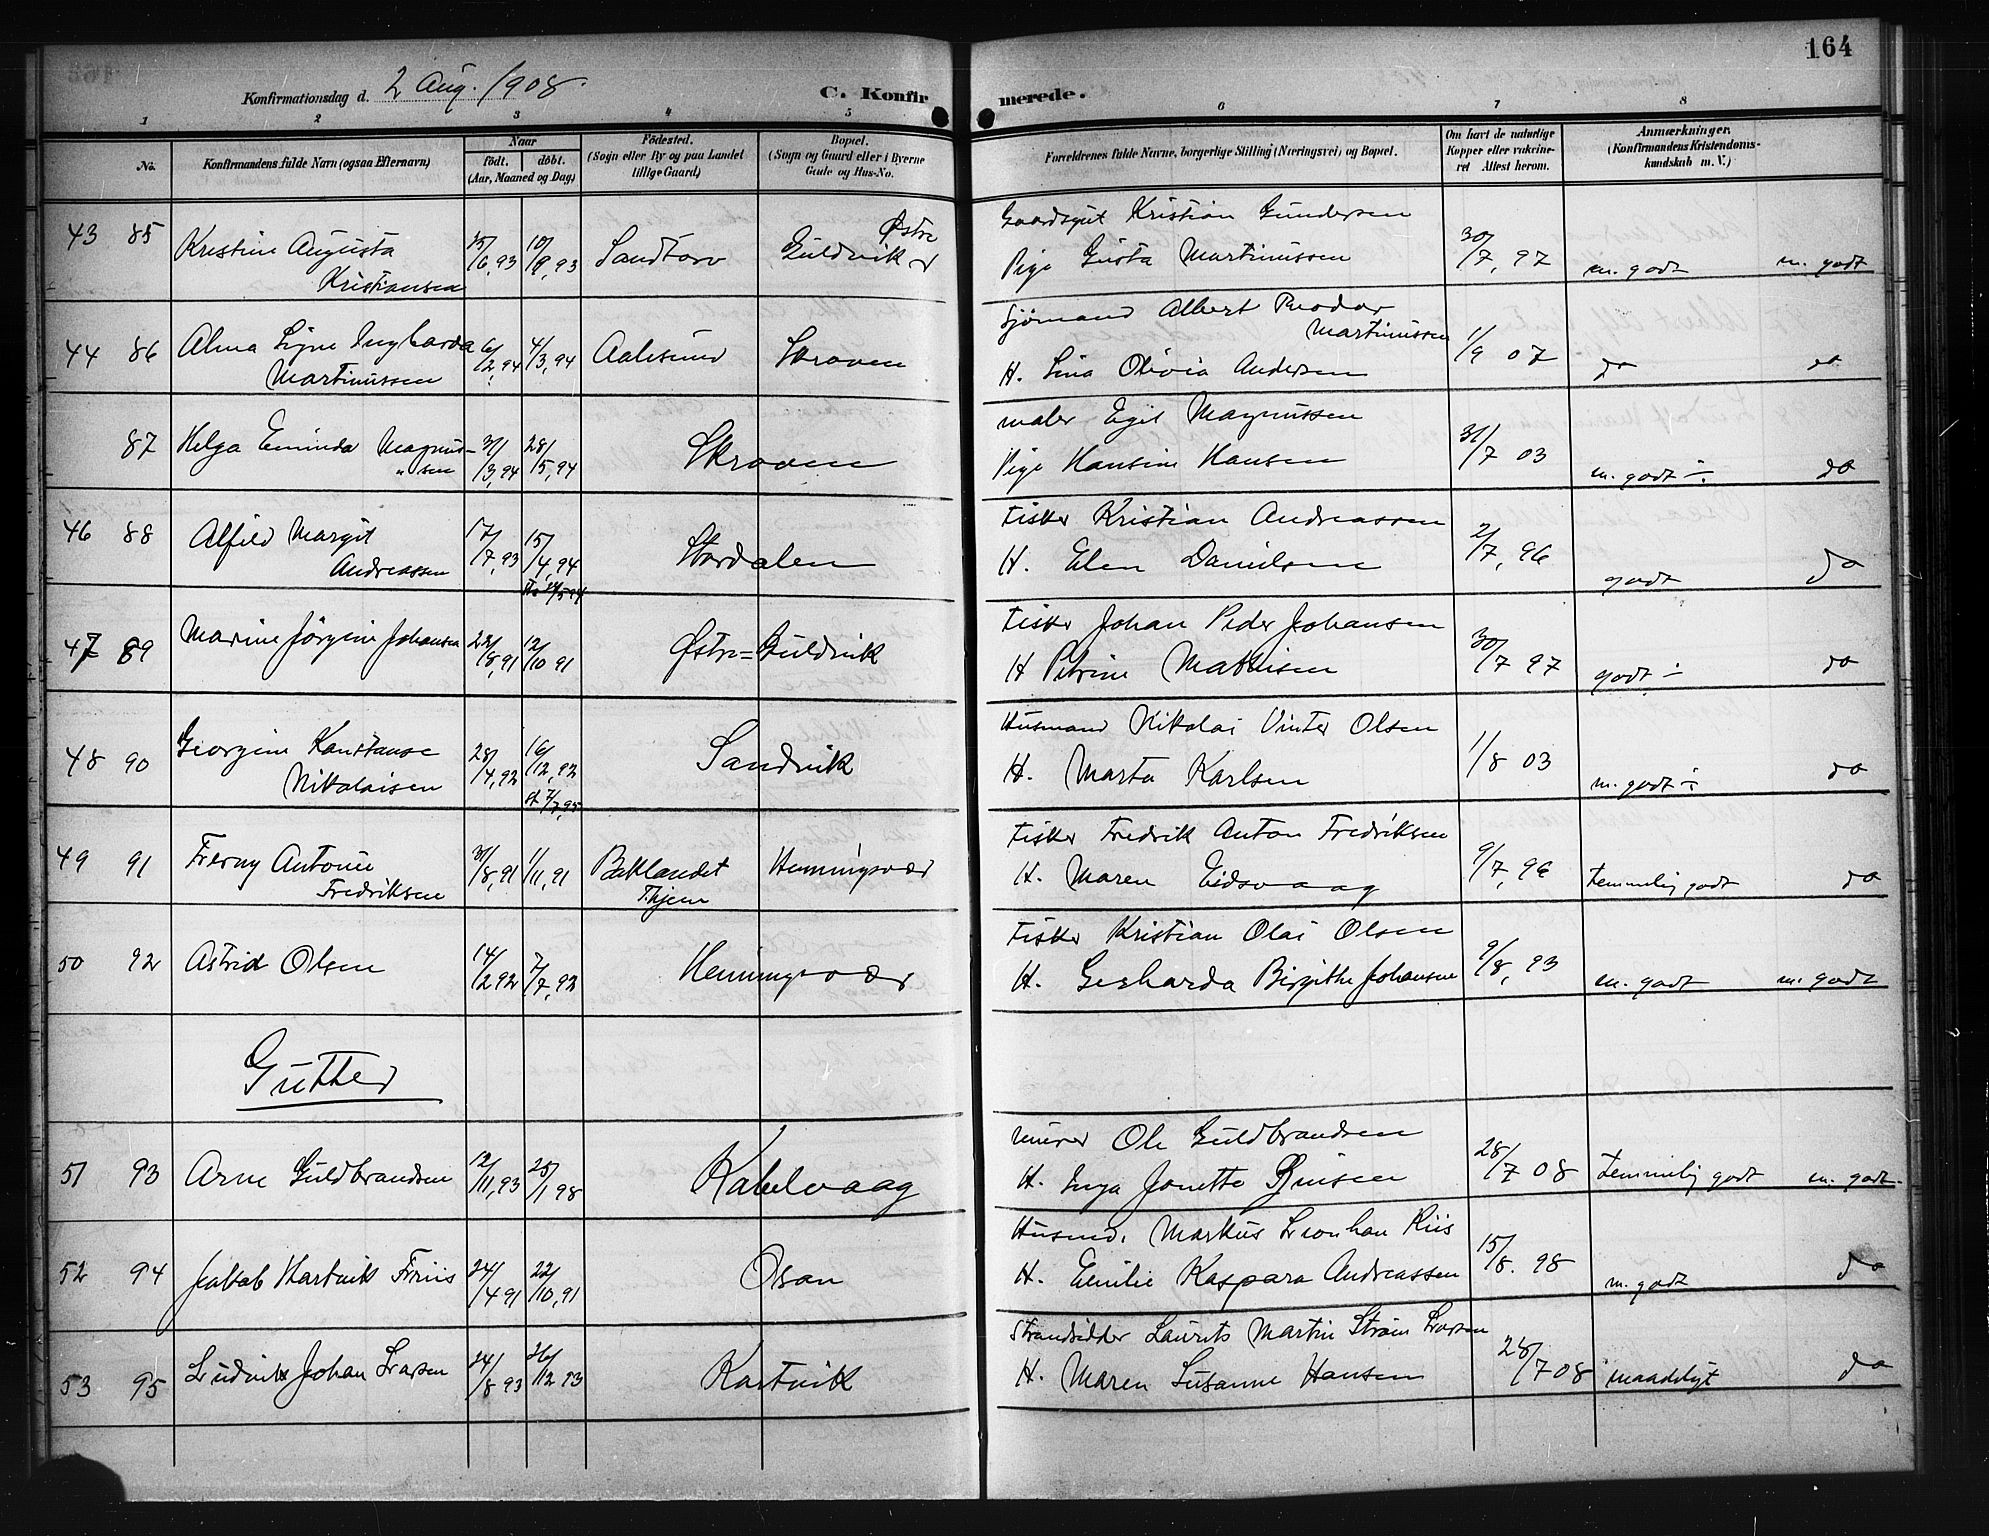 164
Konfirmationsdag d. 2 Aug. 1908.
C. Konfirmerede.
1 2 3 4 5 6 7 8
No. Konfirmandens fulde Navn (ogsaa Efternavn) Naar født. døbt. (Aar, Maaned og Dag) Fødested. (Sogn eller By og paa Landet tillige Gaard) Bopæl. (Sogn og Gaard eller i Byerne Gade og Hus-No. Forældrenes fulde Navne, borgerlige Stilling (Næringsvei) og Bopæl. Om havt de naturlige Kopper eller vakcineret Attest herom. Anmærkninger. (Konfirmandens Kristendomskundskab m. V.)
43 85 Kristine Augusta Kristiansen 15/6, 93 10/9, 93 Sandtorv Østre Guldvik
Gaardsgut Kristian Gundersen
Pige Gusta Martinussen 30/7, 97 m. godt m. godt
44 86 Alma Signe Ingvarda Martinussen 6/2, 94 4/3, 94 Aalesund Skroven
Sjømand Albert Teodor Martinussen
H. Lina Olivia Andersen 1/9 07 do do
87 Helga Eminda Magnussen 31/3, 94 28/5, 94 Skroven
Maler Egil Magnussen
Pige Hansine Hansen 31/7 03 m. godt ÷ do
46 88 Alfild Margit Andreassen 17/7, 93 15/4, 94 Stordalen
Fisker Kristian Andreassen
H. Elen Danielsen 2/7, 96 godt do
47 89 Marine Jørgine Johansen 22/8, 91 12/10 91 Østre=Guldvik
Fisker Johan Peder Johansen
H Petrine Mathisen 30/7 97 godt ÷ do
48 90 Georgine Konstanse Nikolaisen 28/4, 92 16/12, 92 Sandvik
Husmand Nikolai Vinter Olsen
H. Marta Karlsen 1/8 03 m. godt ÷ do
49 91 Frerny Antonie Fredriksen 31/8, 91 1/11, 91 Baklandet T.hjem Henningsvær
Fisker Fredrik Anton Fredriksen
H. Maren Eidsvaag 9/7, 96 temmelig godt do
50 92 Astrid Olsen 14/2 92 7/7, 92 Henningsvær
Fisker Kristian Olai Olsen
H. Gerharda Birgithe Johansen 9/8, 93 m. godt m. godt
Gutter
51 93 Arne Guldbrandsen 12/11, 93 25/1 98 Kabelvaag
Murer Ole Guldbrandsen
H. Inga Jonette 28/7 08 temmelig godt m. godt.
52 94 Jakob Hartvik Friis 24/4 91 22/10, 91 Osan
Husmd. Markus Leonhan Riis
H. Emilie Kaspara Andreassen 15/8. 98 m. godt do
53 95 Ludvik Johan Larsen 24/8 93 26/12 93 Kartvik
Strandsidder Laurits Martin Strøm Larsen
H. Maren Susanne Hansen 28/7 08 maadeligt do